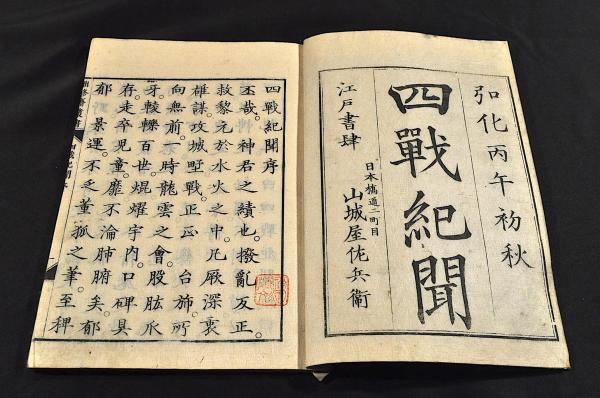 弘化丙午初秋
四戰紀聞
江戸書肆
日本橋通二町目
山城屋佐兵衞
四戰紀聞序
丕哉。神君之績也。撥亂反正。
救黎元於水火之中。凡厥深衷
雄謀。攻城墅戰。正正台旆。所
向無前。時龍雲之會。股肱爪
牙。輘轢百世。焜燿宇内。口碑具
存。走卒兒童。靡不淪肺腑矣。郁
郁景運。不乏董狐之筆。至稗